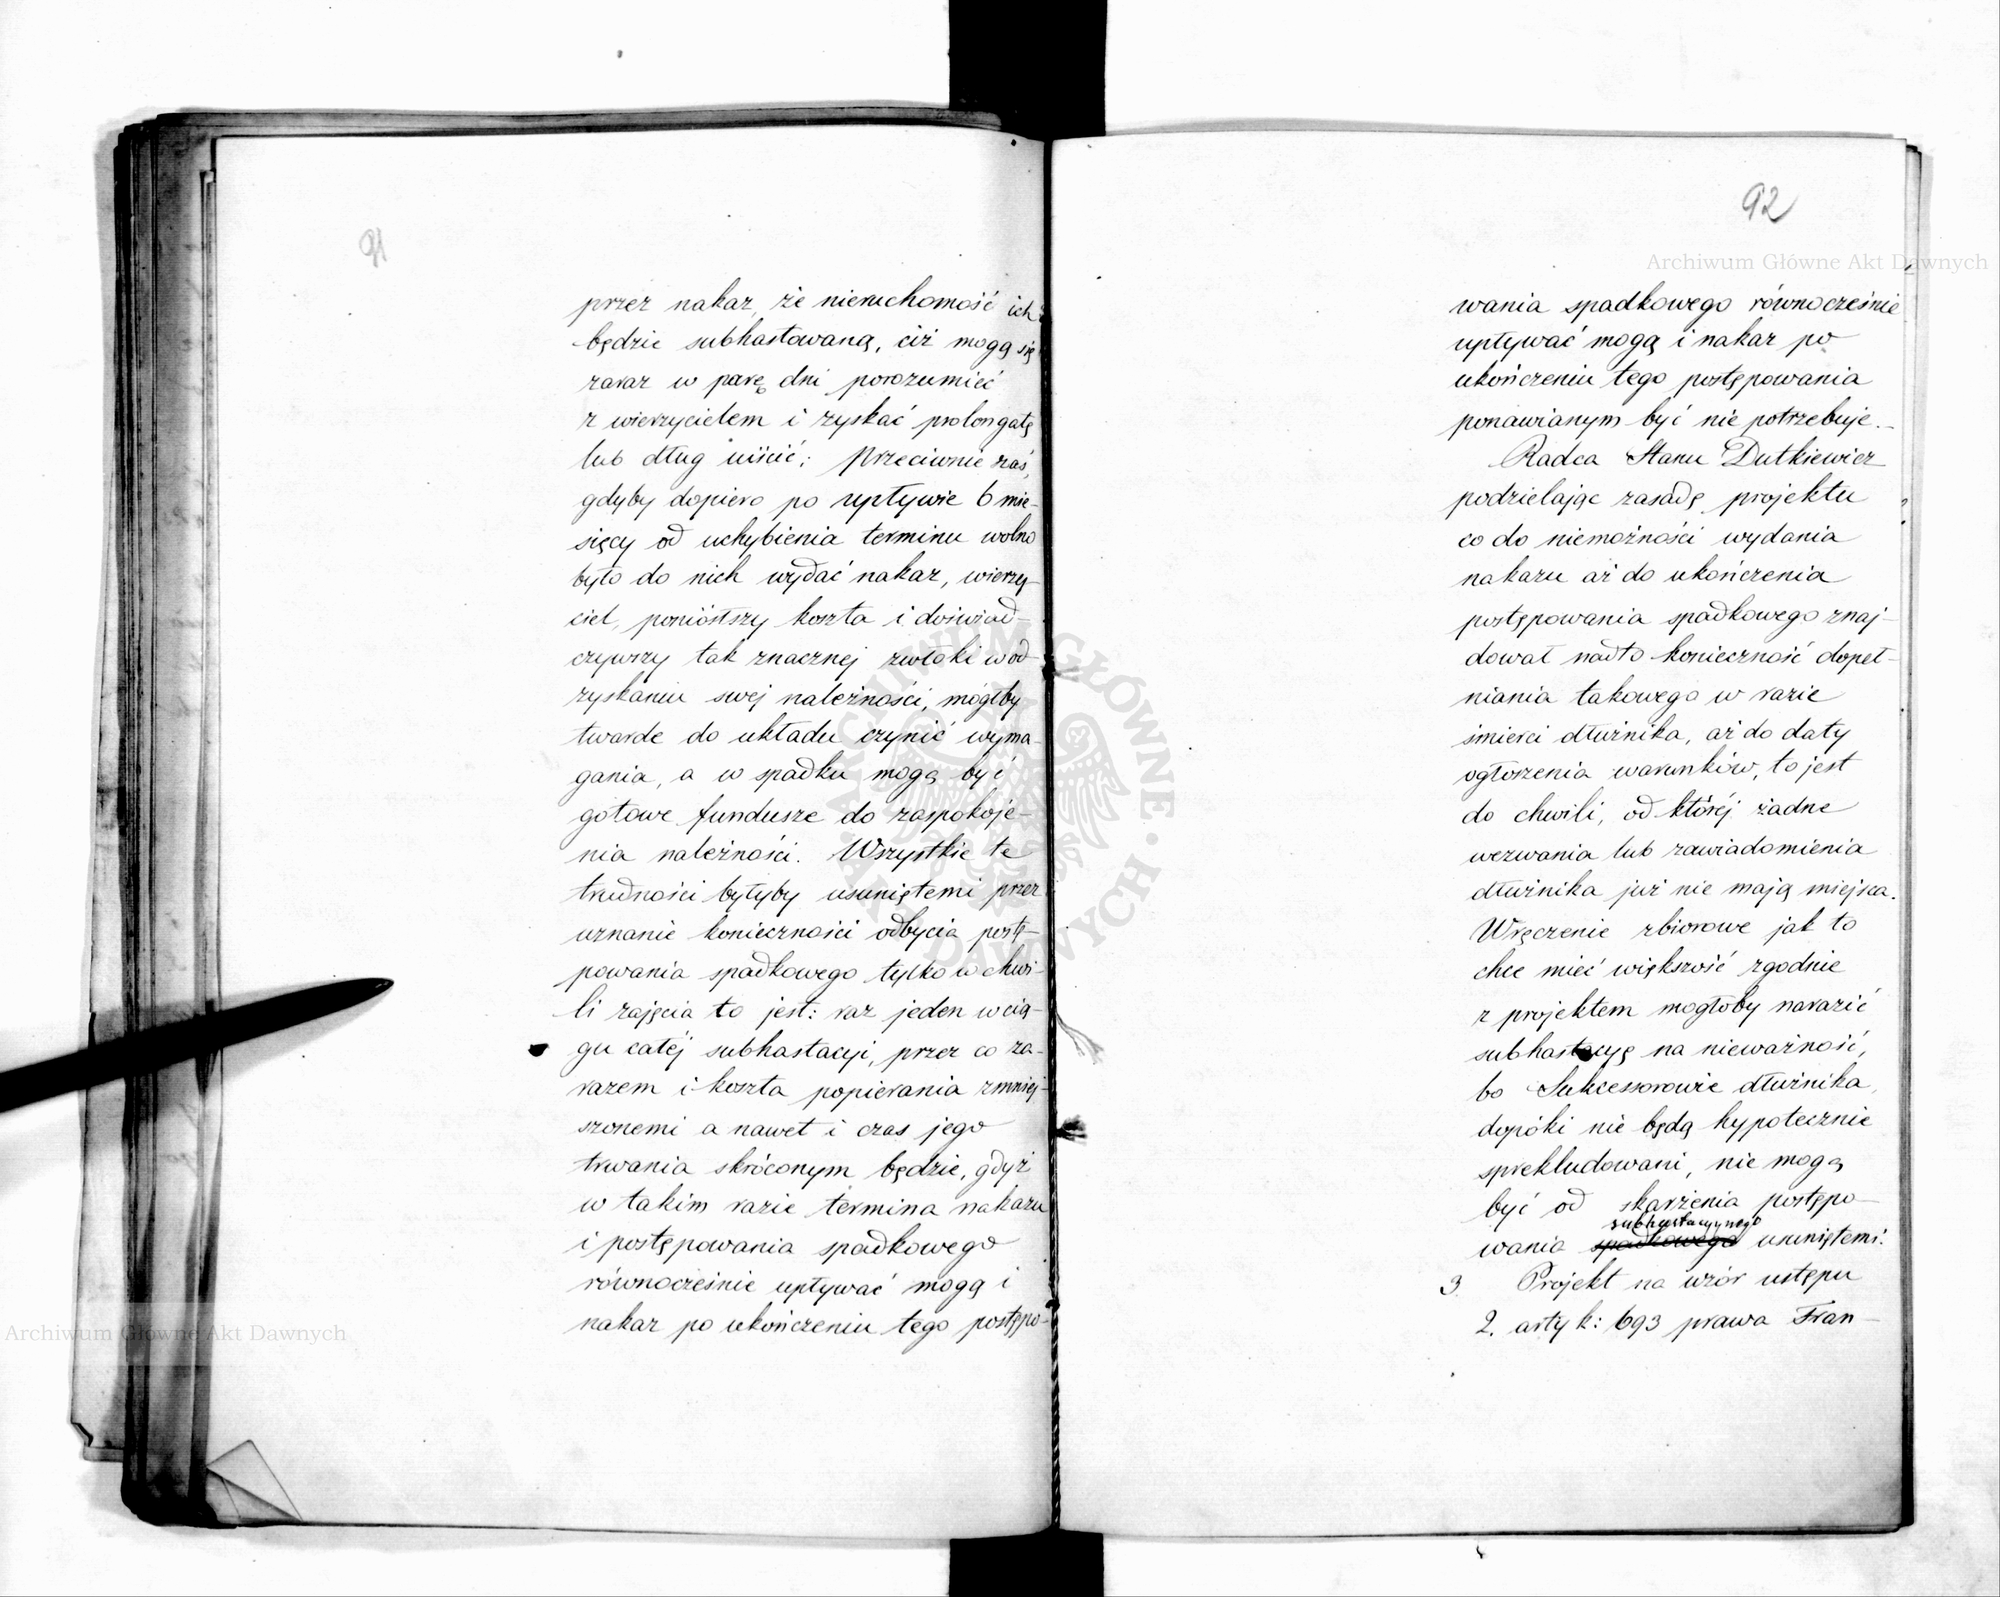 91
przez nakaz, że nieruchomość ich
będzie subhastowaną, ciż mogą się
zaraz w parę dni porozumieć
z wierzycielem i zyskać prolongatę
lub dług uiścić; przeciwnie zaś,
gdyby dopiero po upływie 6 mie-
sięcy od uchybienia terminu wolno
było do nich wydać nakaz, wierzy-
ciel, poniósłszy koszta i doświad-
czywszy tak znacznej zwłoki w od-
zyskaniu swej należności, mógłby
twarde do układu czynić wyma-
gania, a w spadku mogą być
gotowe fundusze do zaspokoje-
nia należności. Wszystkie te
trudności byłyby usuniętemi przez
uznanie konieczności odbycia postę-
powania spadkowego tylko w chwi-
li zajęcia to jest: raz jeden w cią-
gu całéj subhastacyi, przez co za-
razem i koszta popierania zmniej-
szonemi a nawet i czas jego
trwania skróconym będzie, gdyż
w takim razie termina nakazu
i postępowania spadkowego
równocześnie upływać mogą i
nakaz po ukończeniu tego postępo-
92
wania spadkowego równocześnie
upływać mogą i nakaz po
ukończeniu tego postępowania
ponawianym być nie potrzebuje.-
Radca Stanu Dutkiewicz
podzielając zasadę projektu
co do niemożności wydania
nakazu aż do ukończenia
postępowania spadkowego znaj-
dował nadto konieczność dopeł-
niania takowego w razie
śmierci dłużnika, aż do daty
ogłoszenia warunków, to jest
do chwili, od któréj żadne
wezwania lub zawiadomienia
dłużnika już nie mają miejsca.
Wręczenie zbiorowe jak to
chce mieć większość zgodnie
z projektem mogłoby narazić
subhastacyę na nieważność,
bo Sukcessorowie dłużnika,
dopóki nie będą hypotecznie
sprekludowani, nie mogą
być od skarżenia postępo-
subhastacyjnego
wania spadkowego usuniętemi.
3 Projekt na wzór ustępu
2. artyk: 693 prawa Fran-
Archiwum Główne Akt Dawnych
Archiwum Główne Akt Dawnych
ARCHIWUM GŁÓWNE AKT DAWNYCH